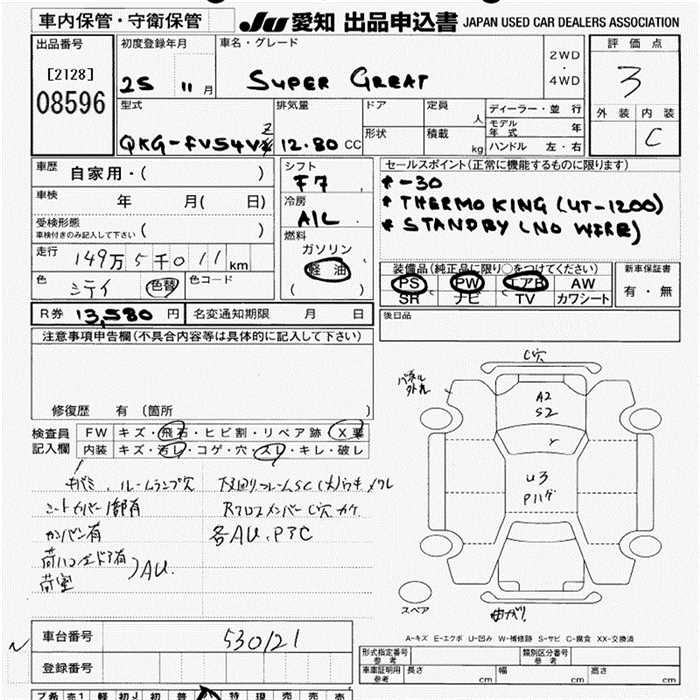 車内保管・守衛保管
JU 愛知 出品申込書 JAPAN USED CAR DEALERS ASSOCIATION
出品番号
[2128]
08596
初度登録年月
25 11月
車名・グレード
SUPER GREAT
2WD
・
4WD
評価点
3
外装 内装
C
型式
QKG-FV54VZ
排気量
12.80 CC
ドア
形状
定員
人
積載
kg
ディーラー・並行
モデル年式 年
ハンドル 左・右
車歴
自家用・( )
車検
年 月( 日)
受検形態
車検付きのみ記入して下さい ( )
走行
149万5千011km
色
シティ 色替
色コード
シフト
F7
冷房
A/C
燃料
ガソリン
軽油
( )
セールスポイント(正常に機能するものに限ります)
* -30
* THERMO KING (UT-1200)
* STANDBY (NO WIRE)
装備品(純正品に限り○をつけてください)
PS PW エアB AW
SR ナビ TV カワシート
新車保証書
有・無
R券 13,580 円
名変通知期限 月 日
後日品
注意事項申告欄(不具合内容等は具体的に記入して下さい)
修復歴 有 (箇所 )
検査員
記入欄
FW キズ・飛石・ヒビ割・リペア跡・X要
内装 キズ・汚レ・コゲ・穴・スレ・キレ・破レ
キバミ、ルームランプ穴
シートカバー1部有
カンバン有
荷室
AU.
各AU、PTC
C穴
A2
S2
Y
U3
Pハゲ
スペア
曲ガリ
A-キズ E-エクボ U-凹み W-補修跡 S-サビ C-腐食 XX-交換済
車台番号
530121
登録番号
形式指定番号
参考
類別区分番号
参考
車庫証明用
参考
長さ cm
幅 cm
高さ cm